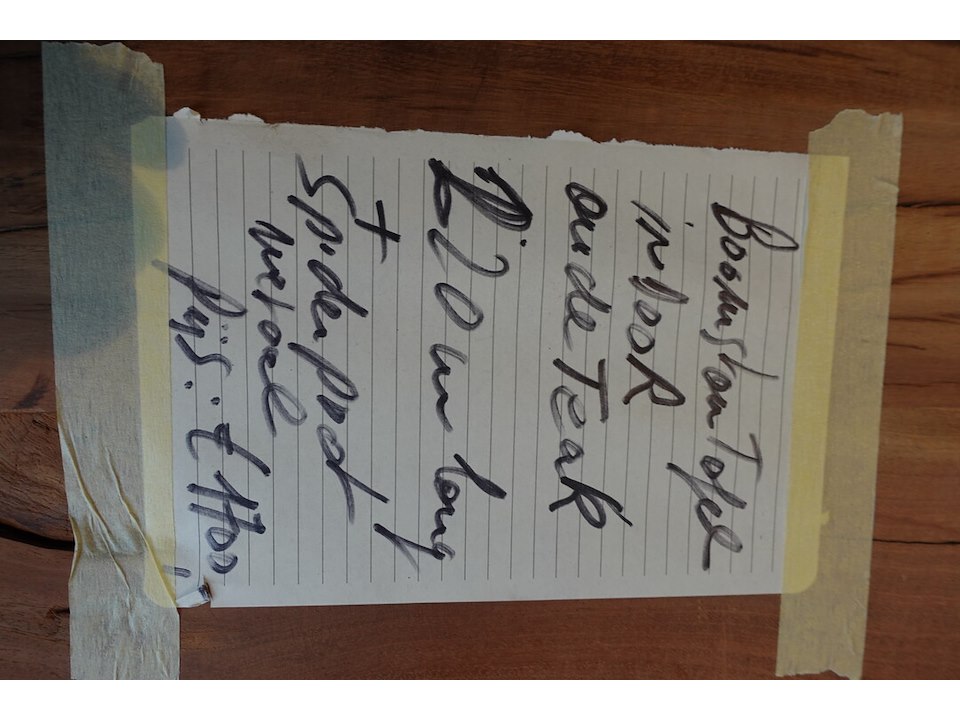 Boomstam Tafel
indoor
oude Teak
long
+
Spiderpoot
metaal
Prijs: